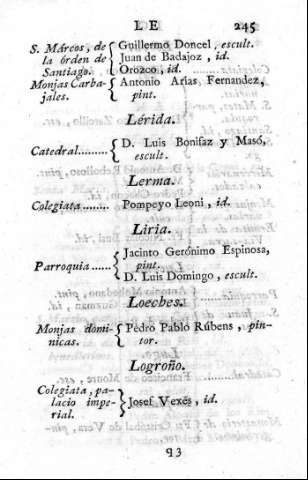 LE 245
S. Márcos, de { Guillermo Doncel, escult.
la órden de { Juan de Badajoz, id.
Santiago. { Orozco, id.
Monjas Carba- { Antonio Arias Fernandez,
jales. { pint.
Lérida.
Catedral......... { D. Luis Bonifaz y Masó,
escult.
Lerma.
Colegiata ........ Pompeyo Leoni, id.
Liria.
Jacinto Gerónimo Espinosa,
Parroquia ...... { pint.
D. Luis Domingo, escult.
Loeches.
Monjas domi- { Pedro Pablo Rúbens, pin-
nicas. { tor.
Logroño.
Colegiata, pa-
lacio impe- } Josef Vexés, id.
rial.
Q3